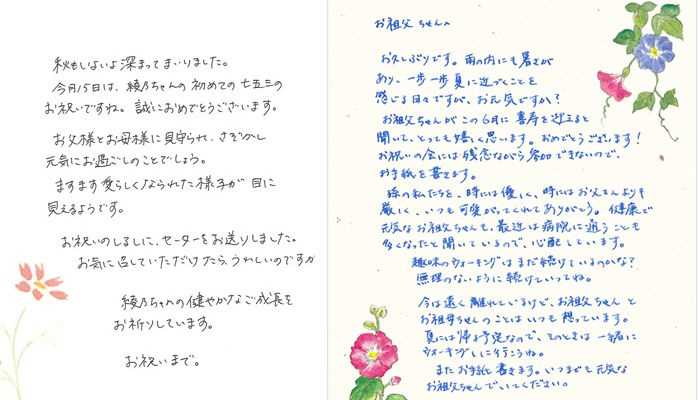 秋もいよいよ深まってまいりました。
今月15日は、綾乃ちゃんの初めての七五三の
お祝いですね。誠におめでとうございます。
お父様とお母様に見守られ、さぞかし
元気にお過ごしのことでしょう。
ますます愛らしくなられた様子が目に
見えるようです。
お祝いのしるしに、セーターをお送りしました。
お気に召していただけたら、うれしいのですが
綾乃ちゃんの健やかなご成長を
お祈りしています。
お祝いまで。
お祖父ちゃんへ
お久しぶりです。雨の内にも暑さが
あり、一歩一歩夏に近づくことを
感じる日々ですが、お元気ですか?
お祖父ちゃんがこの6月に喜寿を迎えると
聞いて、とっても嬉しく思います。おめでとうございます!
お祝いの会には残念ながら参加できないので、
お手紙を書きます。
孫の私たちを、時には優しく、時にはお父さんよりも
厳しく、いつも可愛がってくれてありがとう。健康で
元気なお祖父ちゃんも、最近は病院に通うことも
多くなったと聞いているので、心配しています。
趣味のウォーキングはまだ続けているのかな?
無理のないように続けていってね。
今は遠く離れているけど、お祖父ちゃんと
お祖母ちゃんのことはいつも想っています。
夏には帰る予定なので、そのときは一緒に
ウォーキングしに行こうね。
またお手紙書きます。いつまでも元気な
お祖父ちゃんで、いてください。